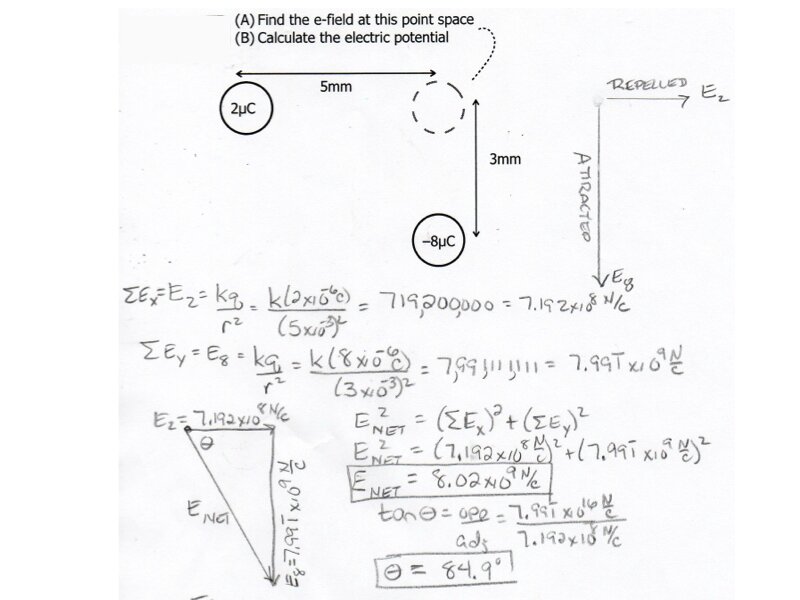 (A) Find the e-field at this point space
(B) Calculate the electric potential
5mm
2μC
3mm
-8μC
REPELLED E₂
ATTRACTED
E₈
ΣEx=E₂= kq/r² = k(2x10⁻⁶C)/(5x10⁻³)² = 719,200,000 = 7.192x10⁸ N/C
ΣEy = E₈ = kq/r² = k(8x10⁻⁶C)/(3x10⁻³)² = 7,991,111,111 = 7.991̅ x10⁹ N/C
E₂=7.192x10⁸N/C
θ
E NET
E₈=7.991̅x10⁹ N/C
E²NET = (ΣEx)²+(ΣEy)²
E²NET = (7.192x10⁸ N/C)²+(7.991̅ x10⁹ N/C)²
E NET = 8.02x10⁹ N/C
tanθ = opp/adj = 7.991̅ x10 N/C / 7.192x10⁸ N/C
θ = 84.9°